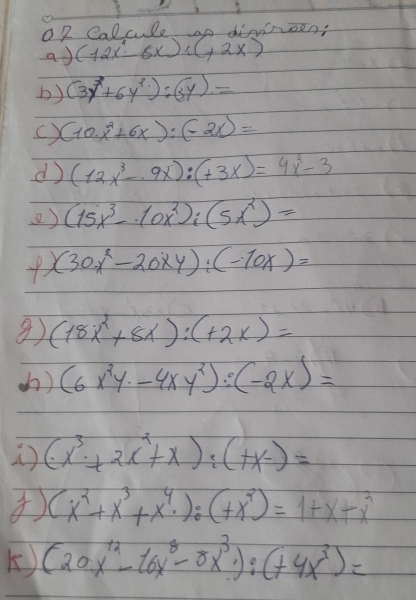 02 Calcule as divisões;
a) (12x² - 6x) : (+2x)
b) (3y³ + 6y²) : (3y) =
c) (10x² + 6x) : (-2x) =
d) (12x³ - 9x) : (+3x) = 4x² - 3
e) (15x³ - 10x²) : (5x²) =
f) (30x² - 20xy) : (-10x) =
g) (18x² + 8x) : (+2x) =
h) (6x²y - 4xy²) : (-2x) =
i) (x³ + 2x² + x) : (+x) =
j) (x² + x³ + x⁴) : (+x²) = 1 + x + x²
k) (20x¹² - 16x⁸ - 8x³) : (+4x²) =